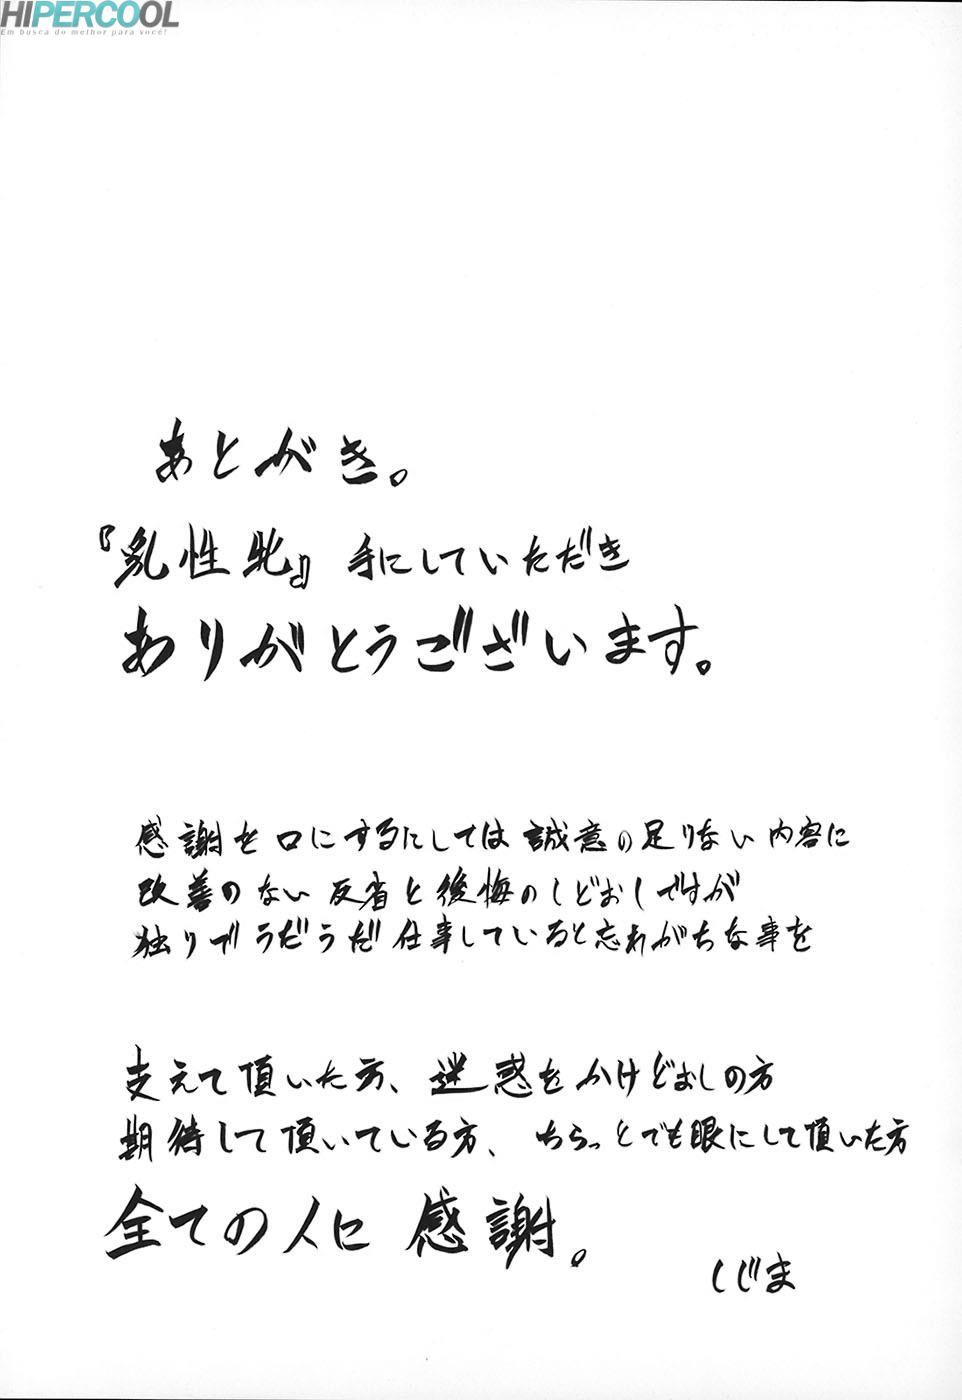 HIPERCOOL
Em busca do melhor para você!
あとがき。
『乳性牝』手にしていただき
ありがとうございます。
感謝を口にするにしては誠意の足りない内容に
改善のない反省と後悔のしどおしですが
独りでうだうだ仕事していると忘れがちな事を
支えて頂いた方、迷惑をかけどおしの方
期待して頂いている方、ちらっとでも眼にして頂いた方
全ての人に感謝。
しじま